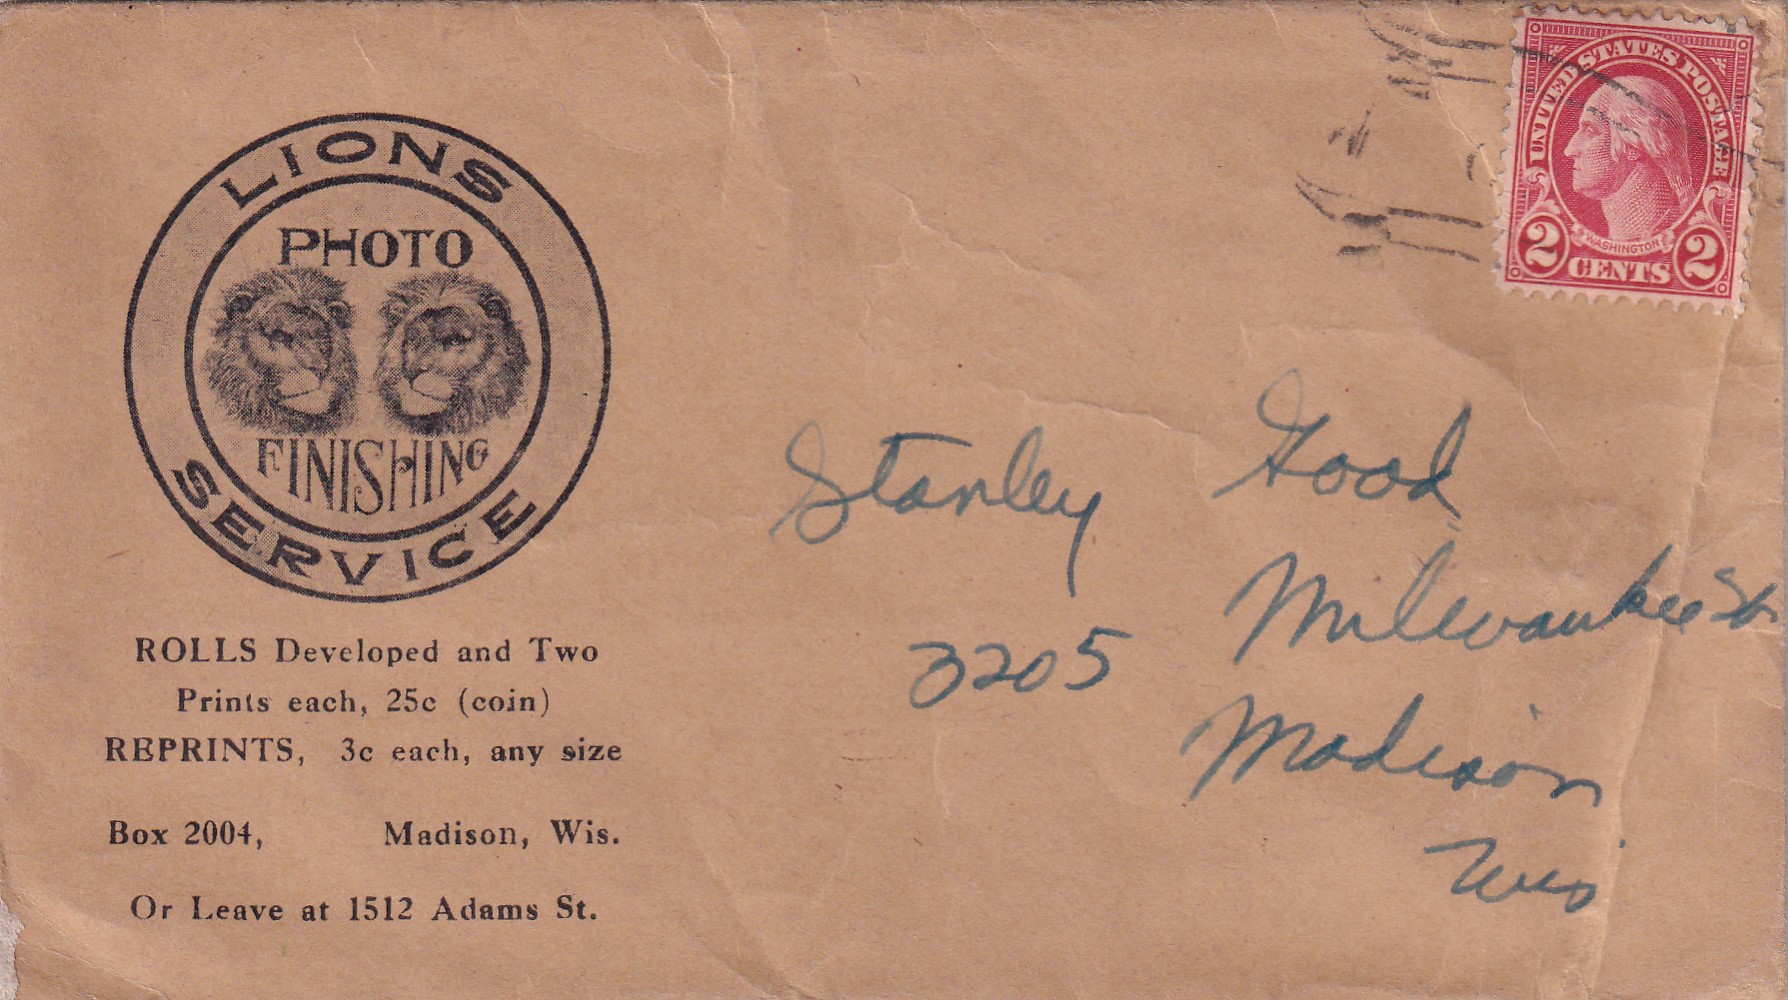 LIONS
PHOTO
FINISHING
SERVICE
ROLLS Developed and Two
Prints each, 25c (coin)
REPRINTS, 3c each, any size
Box 2004, Madison, Wis.
Or Leave at 1512 Adams St.
UNITED STATES POSTAGE
WASHINGTON
2 CENTS 2
Stanley Good
3205 Milwaukee St
Madison
Wis